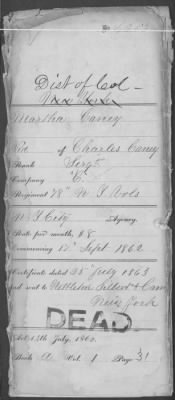 Dist of Col
New York
Martha Caney
of Charles Caney
Rank Sergt
Company "C"
Regiment 78" N Y Vols
N Y City Agency.
Rate per month, $8
Commencing 17" Sept 1862
Certificate dated 25" July 1863
and sent to Nettleton Gilbert & Cam
New York
DEAD
Act 14th July, 1862.
Book A Vol. 1 Page 31